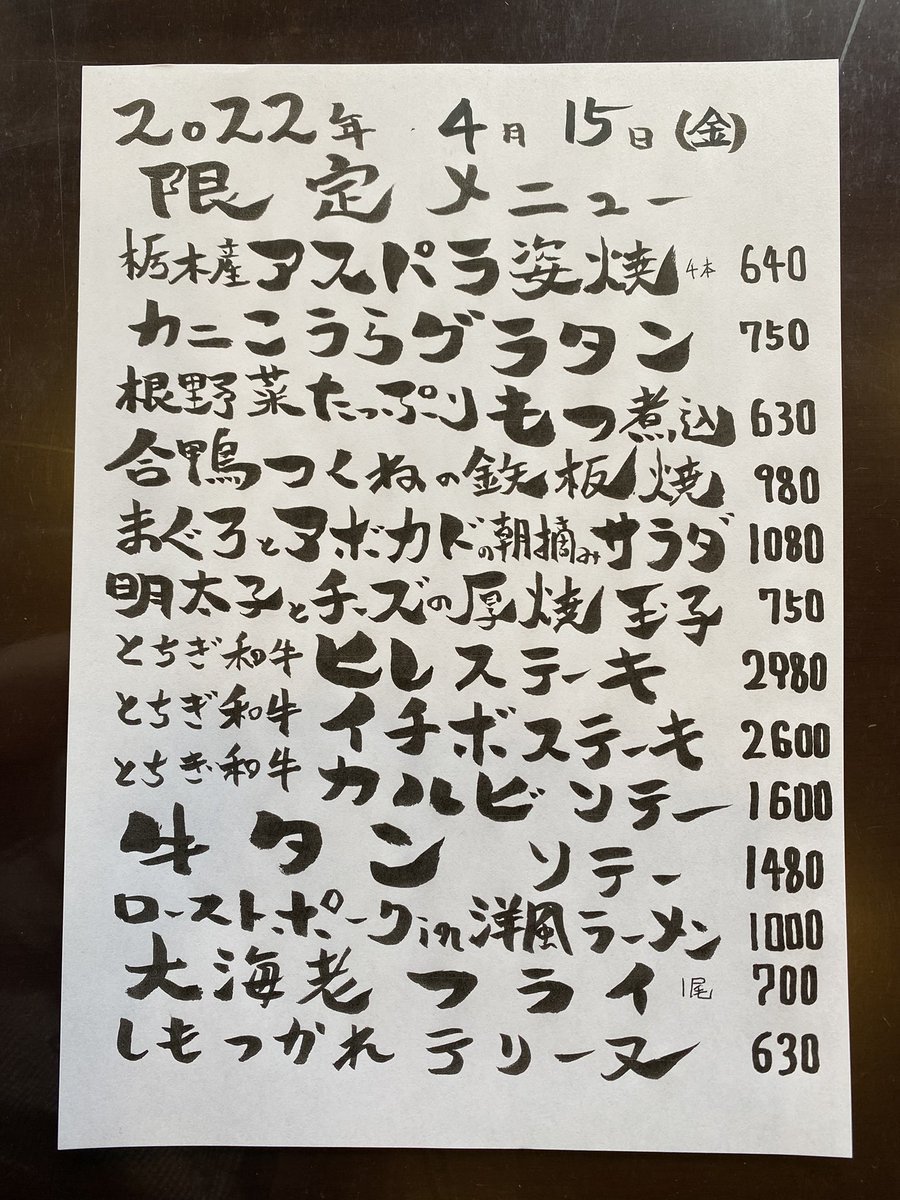 2022年 4月 15日(金)
限定メニュー
栃木産アスパラ姿焼 4本 640
カニこうらグラタン 750
根野菜たっぷりもつ煮込 630
合鴨つくねの鉄板焼 980
まぐろとアボカドの朝摘みサラダ 1080
明太子とチーズの厚焼玉子 750
とちぎ和牛 ヒレステーキ 2980
とちぎ和牛 イチボステーキ 2600
とちぎ和牛 カルビソテー 1600
牛タン ソテー 1480
ローストポークin洋風ラーメン 1000
大海老フライ 1尾 700
しもつかれテリーヌ 630